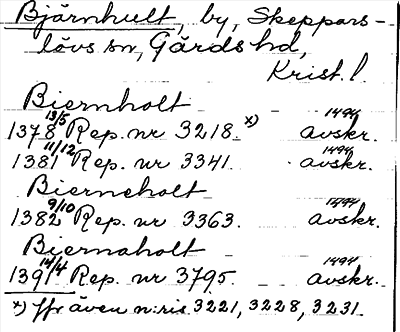 Bjärnhult, by, Skeppars-
lövs sn, Gärds hd,
Krist. l.
Biernholt
1378 13/5 Rep. nr 3218. x) 1494 avskr.
1381 11/12 Rep. nr 3341. 1494 avskr.
Bierneholt
1382 9/10 Rep. nr 3363. 1494 avskr.
Biernaholt
1391 14/4 Rep. nr 3795. 1494 avskr.
x) Jfr även n:ris 3221, 3228, 3231.